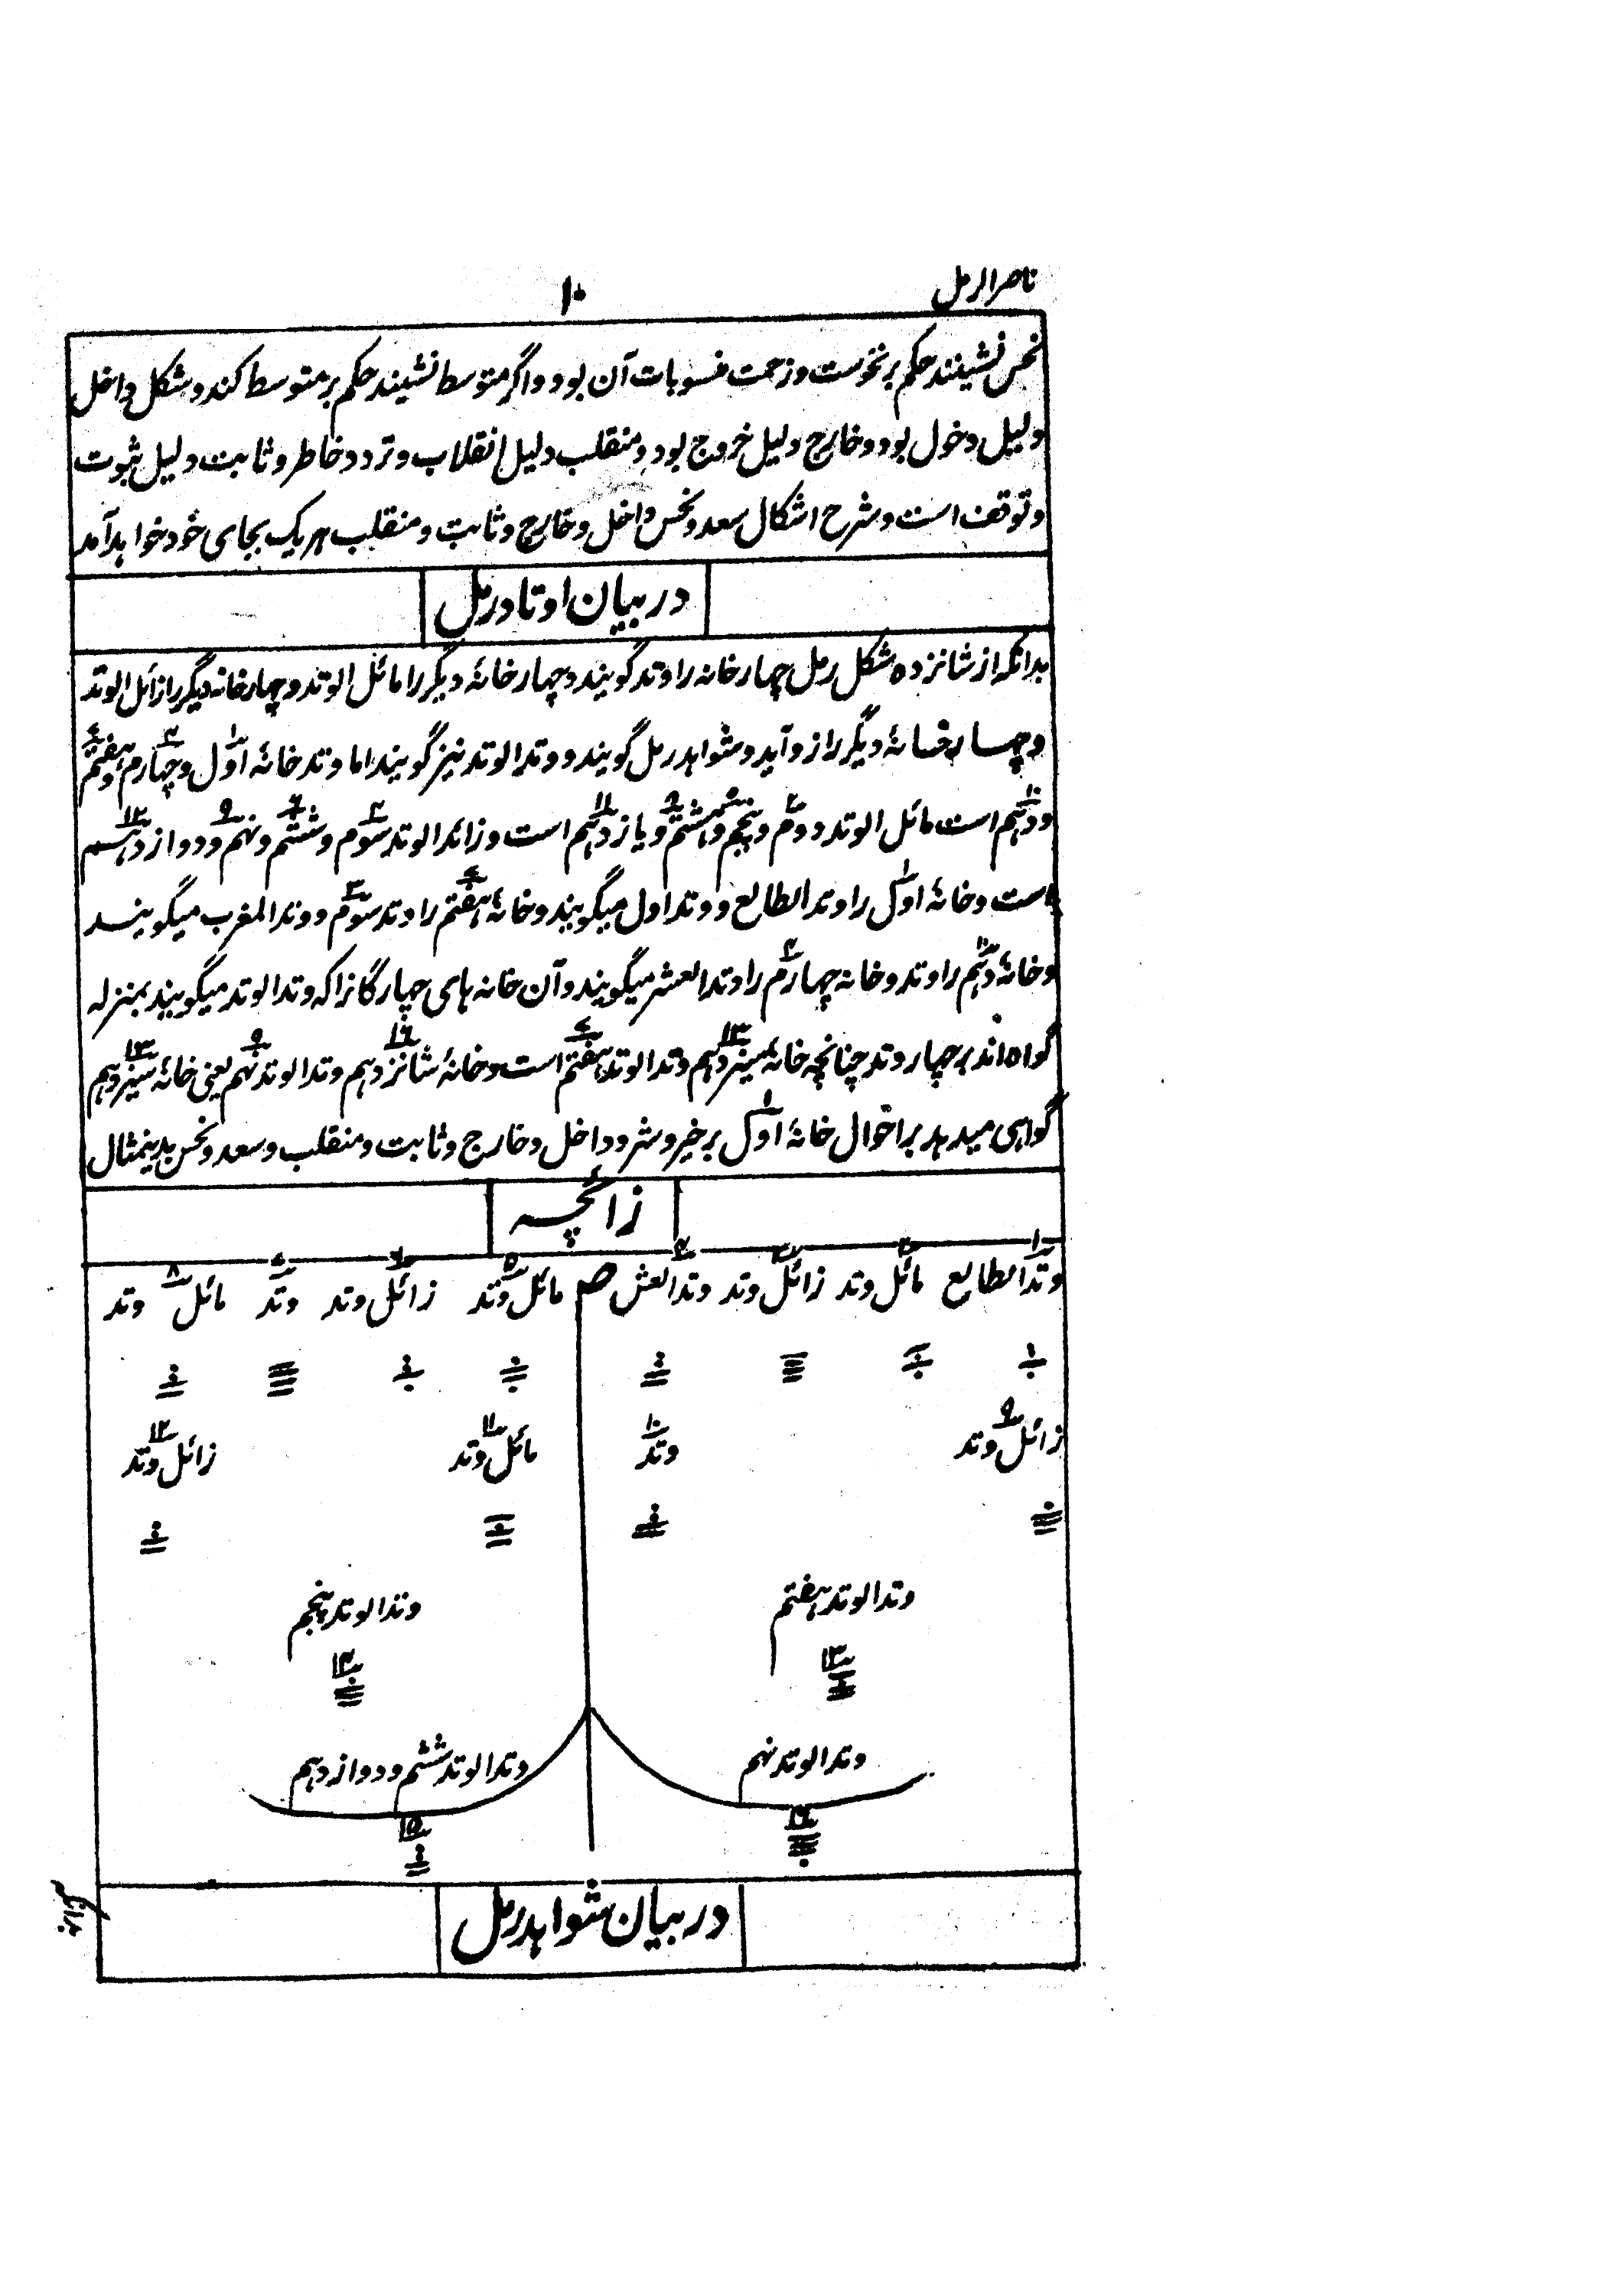 ناصر الرمل
۱۰
نحس نشینند حکم بر نحوست و زحمت منسوبات آن بود و اگر متوسط نشیند حکم بر متوسط کند و شکل داخل
دلیل دخول بود و خارج دلیل خروج بود و منقلب دلیل انقلاب و تردد خاطر و ثابت دلیل ثبوت
و توقف است و شرح اشکال سعد و نحس داخل و خارج و ثابت و منقلب هر یک بجای خود خواهد آمد
در بیان اوتاد رمل
بدانکه از شانزده شکل رمل چهار خانه را وتد گویند و چهار خانهٔ دیگر را مائل الوتد و چهار خانه دیگر را زائل الوتد
و چهار خانهٔ دیگر را زوآید و شواهد رمل گویند و وتد الوتد نیز گویند اما وتد خانهٔ اوّل ۱ و چهارم ۴ و هفتم ۷
و دهم ۱۰ است مائل الوتد دوم ۲ و پنجم ۵ و هشتم ۸ و یازدهم ۱۱ است و زائد الوتد سوم ۳ و ششم ۶ و نهم ۹ و دوازدهم ۱۲
است و خانهٔ اوّل ۱ را وتد الطالع و وتد اول میگویند و خانهٔ هفتم ۷ را وتد سوم ۳ و وتد المغرب میگویند
و خانهٔ دهم ۱۰ را وتد و خانه چهارم ۴ را وتد العشر میگویند و آن خانه های چهارگانرا که وتد الوتد میگویند بمنزله
گواه اند بر چهار وتد چنانچه خانهٔ سیزدهم ۱۳ وتد الوتد هفتم ۷ است و خانهٔ شانزدهم ۱۶ وتد الوتد نهم ۹ یعنی خانهٔ سیزدهم ۱۳
گواهی میدهد بر احوال خانهٔ اوّل ۱ بر خیر و شر و داخل و خارج و ثابت و منقلب و سعد و نحس بدینمثال
زائچه
وتد الطالع ۱ مائل وتد ۲ زائل وتد ۳ وتد العش ۴ مائل وتد ۵ زائل وتد ۶ وتد ۷ مائل ۸ وتد
زائل وتد ۹ وتد ۱۰ مائل وتد ۱۱ زائل وتد ۱۲
وتد الوتد هفتم وتد الوتد پنجم
۱۳ ۱۴
وتد الوتد نهم وتد الوتد ششم و دوازدهم
۱۶ ۱۵
در بیان شواهد رمل
بدانکه